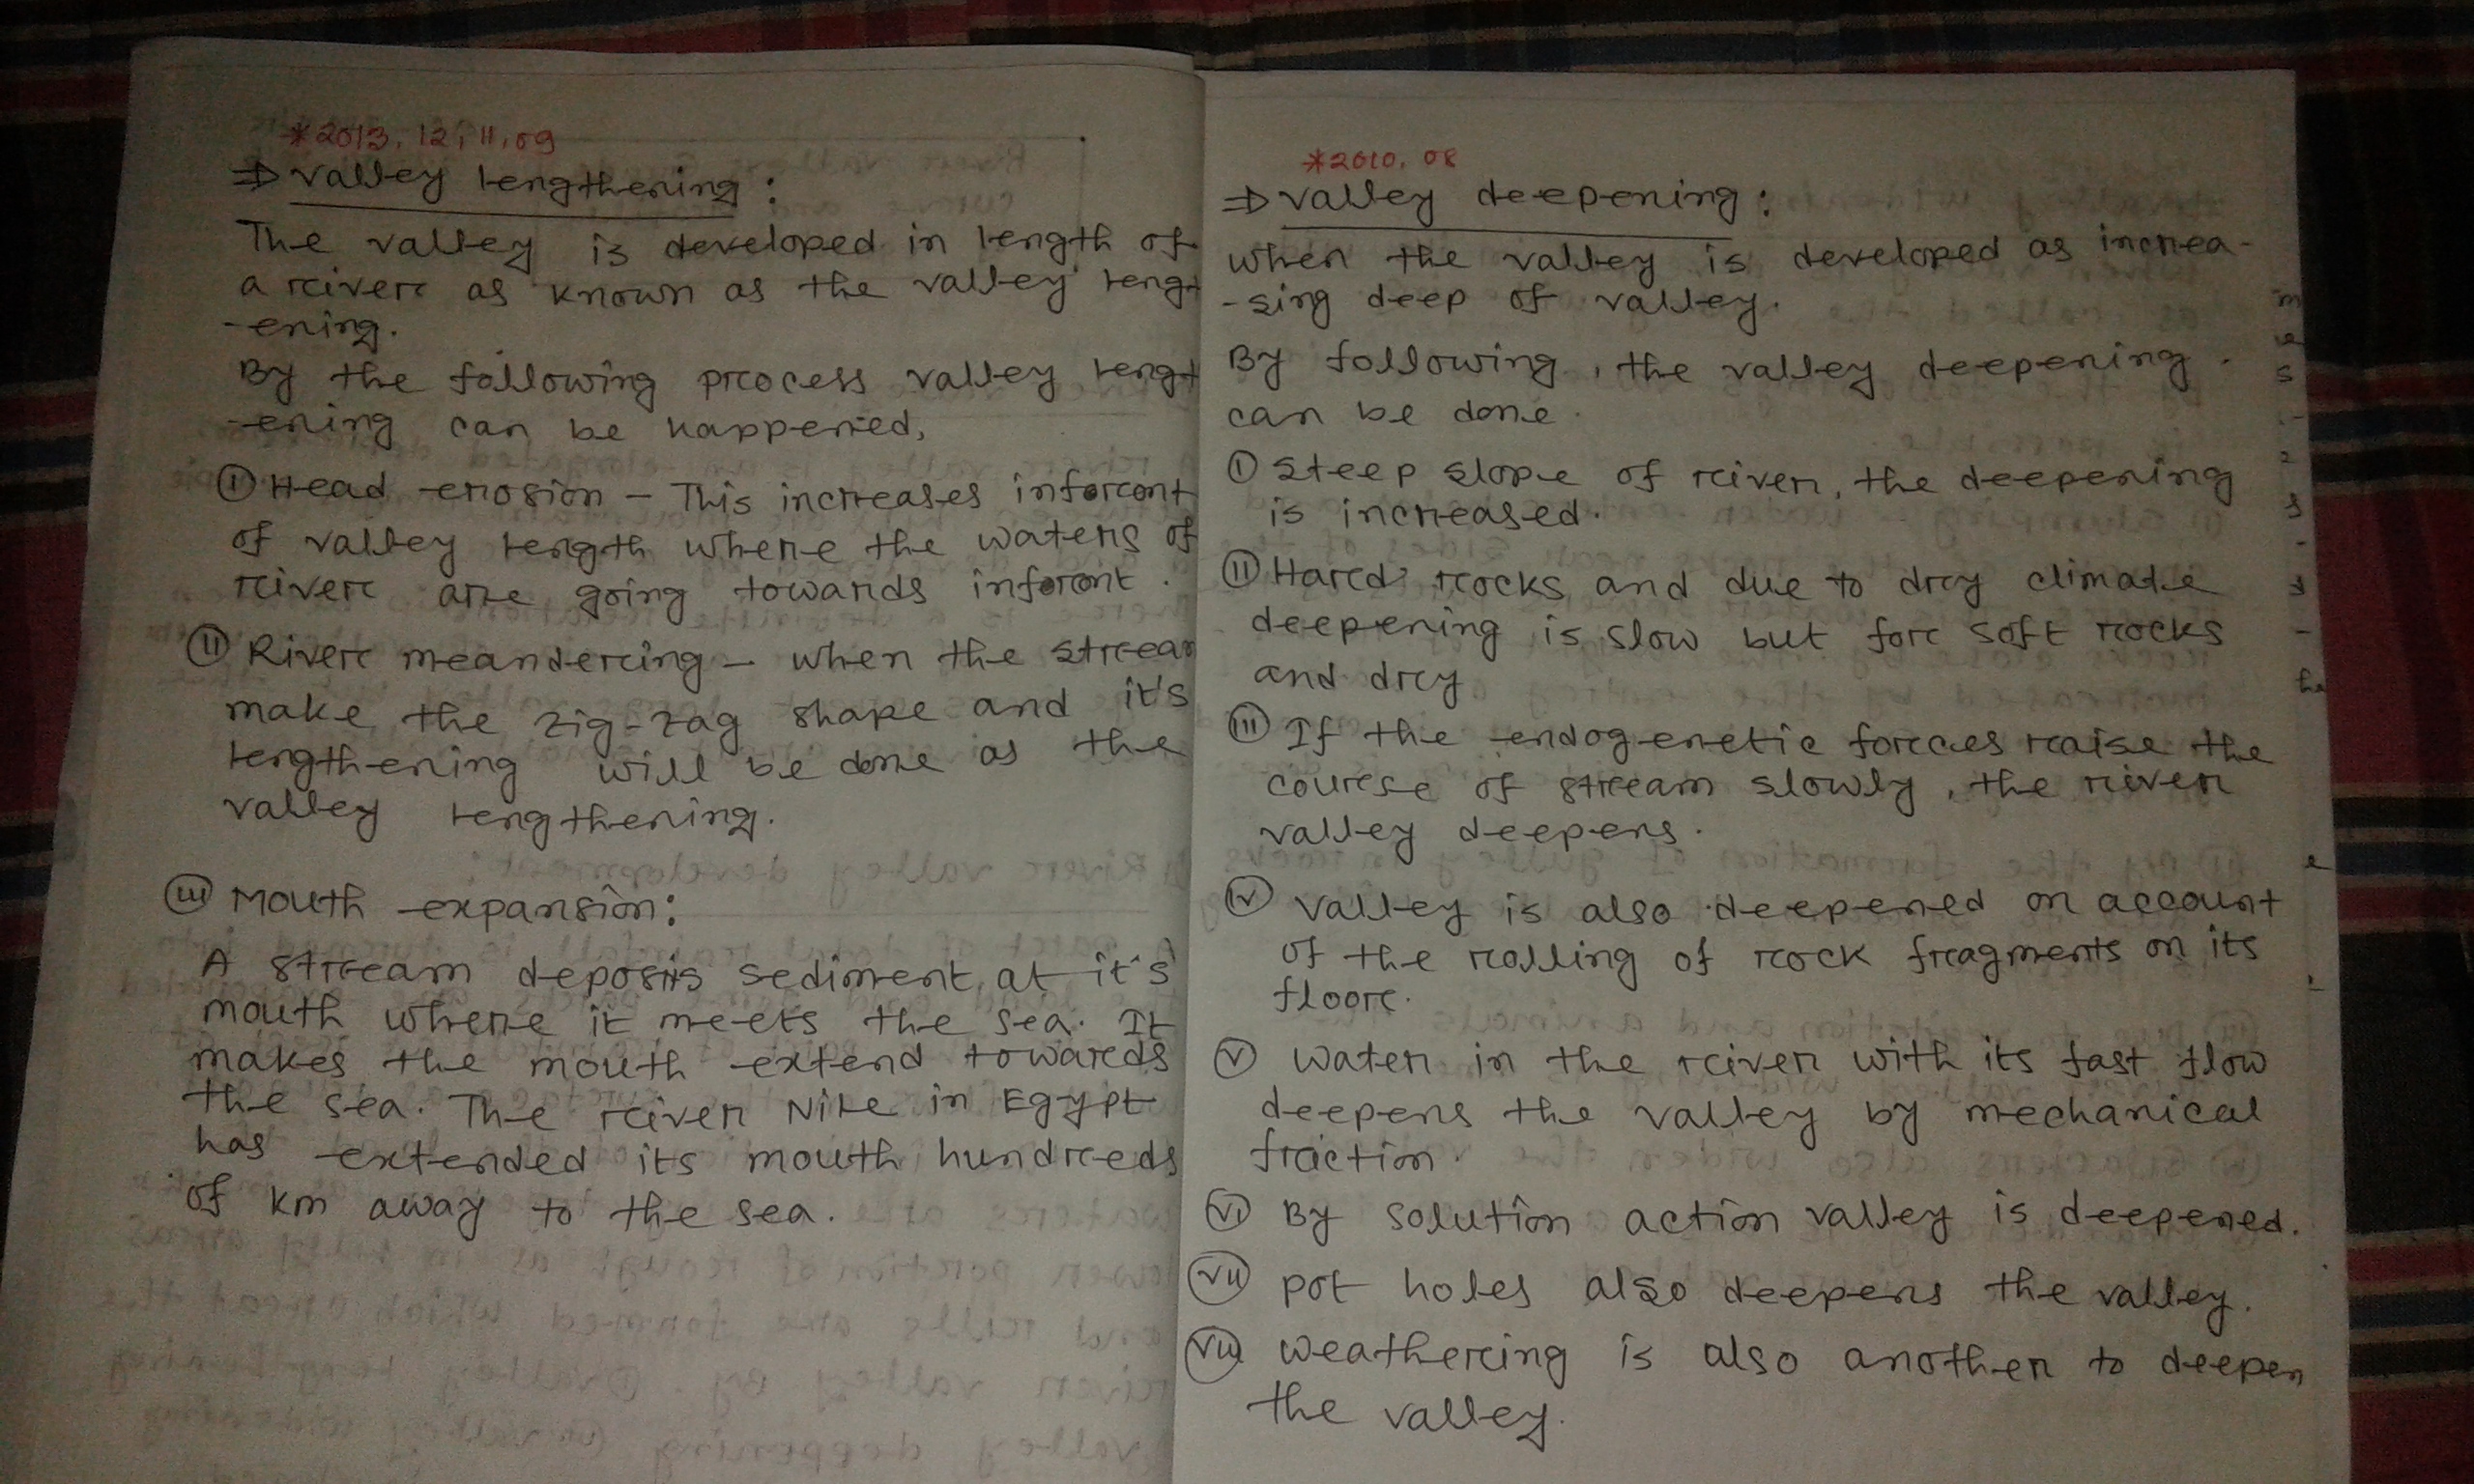 *2013, 12, 11, 09
⇒ valley lengthening :
The valley is developed in length of
a river as known as the valley lengt
-ening.
By the following process valley lengt
-ening can be happened,
(i) Head erosion – This increases inforcont
of valley length where the waters of
river are going towards inforont.
(ii) River meandering – when the stream
make the zig-zag shape and it's
lengthening will be done as the
valley lengthening.
(iii) Mouth expansion:
A stream deposits sediment at it's
mouth where it meets the sea. It
makes the mouth extend towards
the sea. The river Nile in Egypt
has extended its mouth hundreds
of km away to the sea.
*2010, 08
⇒ valley deepening :
when the valley is developed as increa-
-sing deep of valley.
By following, the valley deepening
can be done.
(i) Steep slope of river, the deepening
is increased.
(ii) Hard rocks and due to dry climate
deepening is slow but for soft rocks
and dry
(iii) If the endogenetic forces raise the
course of stream slowly, the river
valley deepens.
(iv) valley is also deepened on account
of the rolling of rock fragments on its
floor.
(v) water in the river with its fast flow
deepens the valley by mechanical
fraction.
(vi) By solution action valley is deepened.
(vii) pot holes also deepens the valley.
(viii) weathering is also another to deepen
the valley.